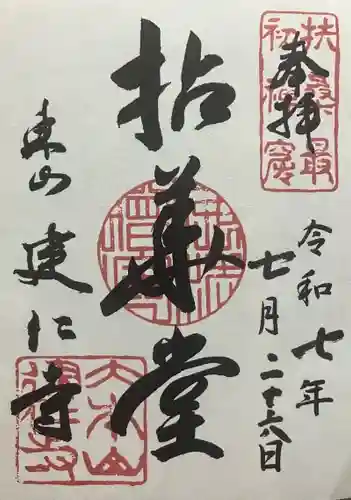 奉拝
扶桑最
初禅窟
令和七年
七月二十六日
拈華堂
東山
建仁寺